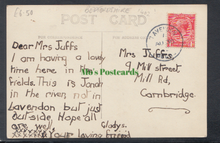 £6.50
POST CARD
Dear Mrs Juffs
I am having a lovely
time here in the
fields. This is Jordan
in the river, not in
Lavendon but just
outside. Hope all
are well, Gladys.
your loving friend
Mrs Juffs,
9, Mill street,
Mill Rd,
Cambridge.
's Postcards